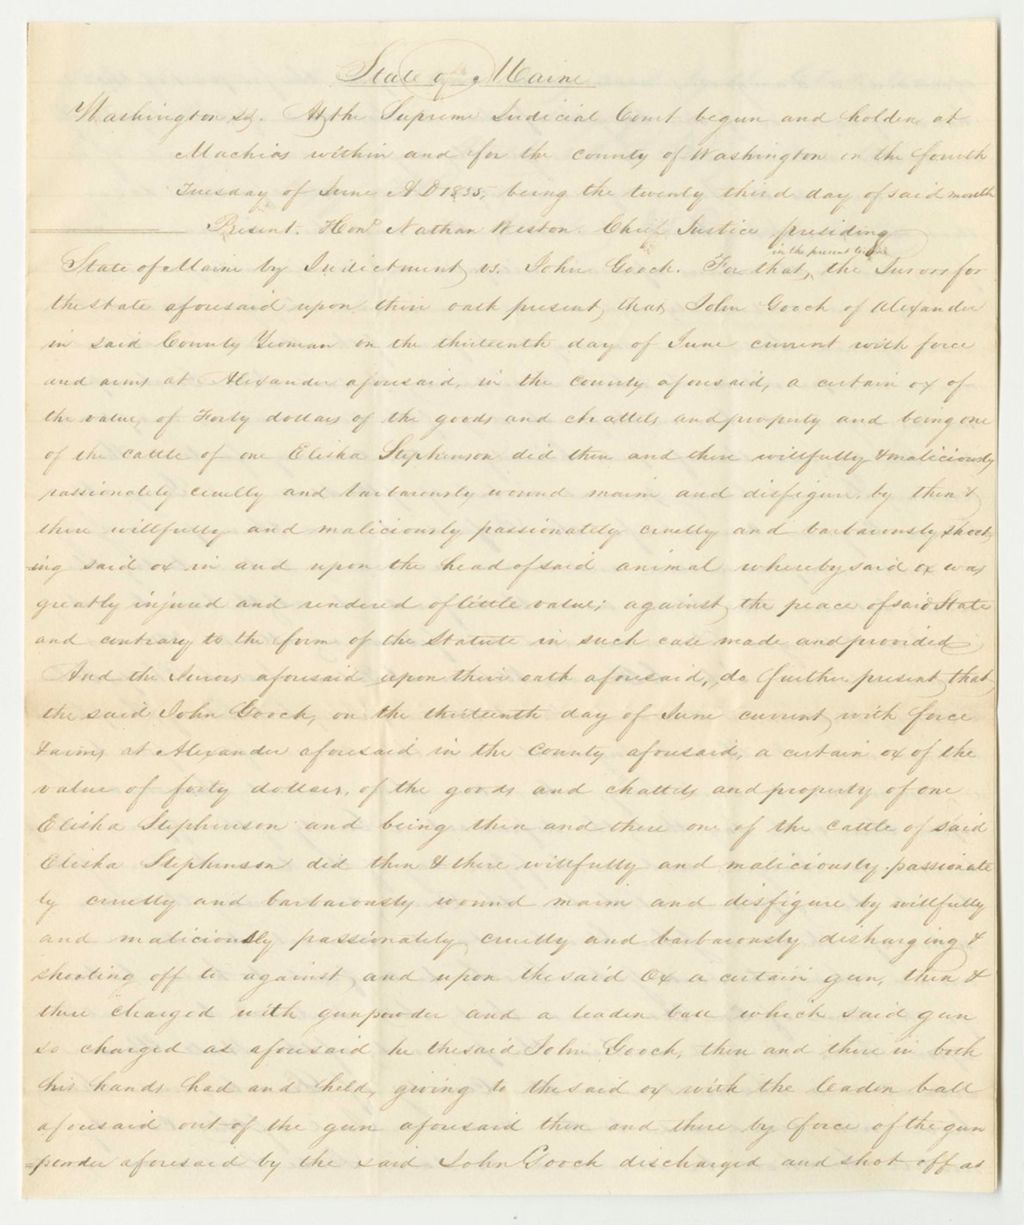 State of Maine
Washington ss. At the Supreme Judicial Court begun and holden at
Machias within and for the county of Washington on the fourth
Tuesday of June A D 1835, being the twenty third day of said month
Present. Hond Nathan Weston. Chief Justice presiding
in the present
State of Maine by Indictment, vs. John Gooch. For that, the Jurors for
the state aforesaid upon their oath present, that, John Gooch of Alexander
in said County Yeoman on the thirteenth day of June current with force
and arms at Alexander aforesaid, in the county aforesaid, a certain ox of
the value of Forty dollars of the goods and chattels and property and being one
of the cattle of one Elisha Stephenson did then and there willfully & maliciously
passionately cruelly and barbarously wound maim and disfigure, by then &
there willfully and maliciously passionately cruelly and barbarously shoot,
ing said ox in and upon the head of said animal whereby said ox was
greatly injured and rendered of little value; against, the peace of said State
and contrary to the form of the Statute in such case made and provided
And the Jurors aforesaid upon their oath aforesaid, do further present, that,
the said John Gooch, on the thirteenth day of June current, with force
& arms, at Alexander aforesaid in the county aforesaid, a certain ox of the
value of forty dollars, of the goods and chattels and property of one
Elisha Stephenson and being then and there one of the cattle of said
Elisha Stephenson did then & there willfully and maliciously passionate
ly cruelly and barbarously wound maim and disfigure by willfully
and maliciously passionately cruelly and barbarously disharging &
shooting off to against, and upon the said Ox a certain gun, then &
there charged with gunpowder and a leaden ball which said gun
so charged as aforesaid he the said John Gooch, then and there in both
his hands had and held, giving to the said ox with the leaden ball
aforesaid out of the gun aforesaid then and there by force of the gun
=powder aforesaid by the said John Gooch discharged and shot off as